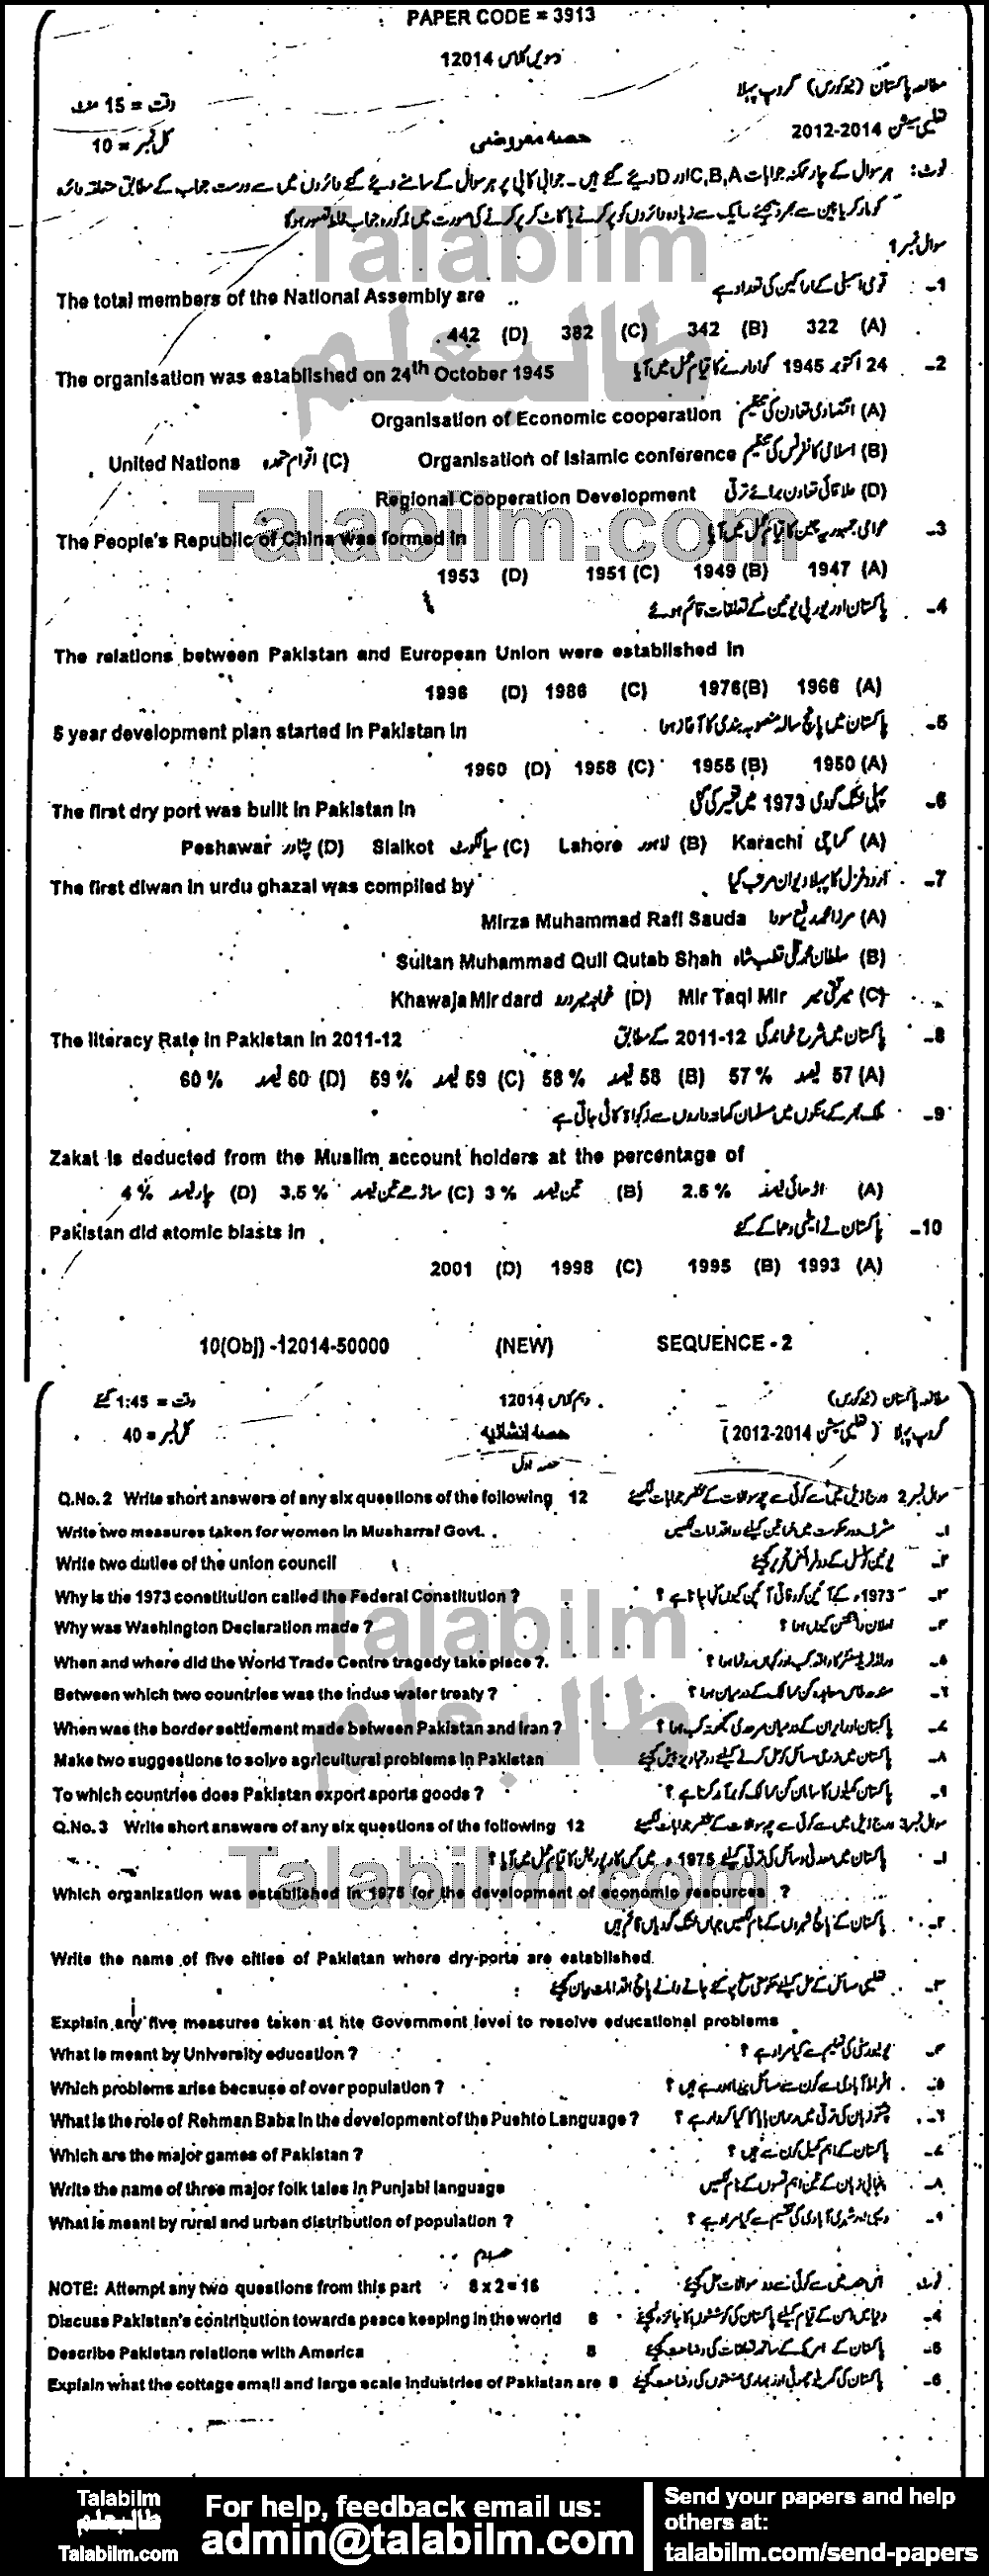 PAPER CODE = 3913
دسویں کلاس 12014
مطالعہ پاکستان (نیو کورس) گروپ پہلا
وقت = 15 منٹ
تعلیمی سیشن 2014-2012
حصہ معروضی
کل نمبر = 10
نوٹ: ہر سوال کے چار ممکنہ جوابات C,B,A اور D دیئے گئے ہیں۔ جوابی کاپی پر ہر سوال کے سامنے دیئے گئے دائروں میں سے درست جواب کے مطابق متعلقہ دائرہ
کو مارکر یا پین سے بھر دیجئے۔ ایک سے زیادہ دائروں کو پر کرنے یا کاٹ کر پر کرنے کی صورت میں مذکورہ جواب غلط تصور ہوگا
سوال نمبر 1
1- قومی اسمبلی کے اراکین کی تعداد ہے
The total members of the National Assembly are
(A) 322 (B) 342 (C) 382 (D) 442
2- 24 اکتوبر 1945 کو ادارے کا قیام عمل میں آیا
The organisation was established on 24th October 1945
(A) اقتصادی تعاون کی تنظیم Organisation of Economic cooperation
(B) اسلامی کانفرنس کی تنظیم Organisation of Islamic conference (C) اقوام متحدہ United Nations
(D) علاقائی تعاون برائے ترقی Regional Cooperation Development
3- عوامی جمہوریہ چین کا قیام عمل میں آیا
The People's Republic of China was formed in
(A) 1947 (B) 1949 (C) 1951 (D) 1953
4- پاکستان اور یورپی یونین کے تعلقات قائم ہوئے
The relations between Pakistan and European Union were established in
(A) 1966 (B) 1976 (C) 1986 (D) 1996
5- پاکستان میں پانچ سالہ منصوبہ بندی کا آغاز ہوا
5 year development plan started in Pakistan in
(A) 1950 (B) 1955 (C) 1958 (D) 1960
6- پہلی خشک گودی 1973 میں تعمیر کی گئی
The first dry port was built in Pakistan in
(A) کراچی Karachi (B) لاہور Lahore (C) سیالکوٹ Sialkot (D) پشاور Peshawar
7- اردو غزل کا پہلا دیوان مرتب کیا
The first diwan in urdu ghazal was compiled by
(A) مرزا محمد رفیع سودا Mirza Muhammad Rafi Sauda
(B) سلطان محمد قلی قطب شاہ Sultan Muhammad Quli Qutab Shah
(C) میر تقی میر Mir Taqi Mir (D) خواجہ میر درد Khawaja Mir dard
8- پاکستان میں شرح خواندگی 12-2011 کے مطابق
The literacy Rate in Pakistan in 2011-12
(A) 57 فیصد 57 % (B) 58 فیصد 58 % (C) 59 فیصد 59 % (D) 60 فیصد 60 %
9- ملک بھر کے بنکوں میں مسلمان کھاتہ داروں سے زکوٰۃ کاٹی جاتی ہے
Zakat is deducted from the Muslim account holders at the percentage of
(A) اڑھائی فیصد 2.5 % (B) تین فیصد 3 % (C) ساڑھے تین فیصد 3.5 % (D) چار فیصد 4 %
10- پاکستان نے ایٹمی دھماکے کئے
Pakistan did atomic blasts in
(A) 1993 (B) 1995 (C) 1998 (D) 2001
10(Obj) -12014-50000 (NEW) SEQUENCE - 2
مطالعہ پاکستان (نیو کورس) دہم کلاس 12014 وقت = 1:45 گھنٹے
گروپ پہلا (تعلیمی سیشن 2014-2012) حصہ انشائیہ کل نمبر = 40
حصہ اول
سوال نمبر 2 درج ذیل میں سے کوئی سے چھ سوالات کے مختصر جوابات لکھیئے
Q.No. 2 Write short answers of any six questions of the following 12
۱۔ مشرف دور حکومت میں خواتین کیلئے دو اقدامات لکھیں
Write two measures taken for women in Musharraf Govt.
۲۔ یونین کونسل کے دو فرائض تحریر کیجئے
Write two duties of the union council
۳۔ 1973ء کے آئین کو وفاقی آئین کیوں کہا جاتا ہے ؟
Why is the 1973 constitution called the Federal Constitution ?
۴۔ اعلان واشنگٹن کیوں ہوا ؟
Why was Washington Declaration made ?
۵۔ ورلڈ ٹریڈ سنٹر کا واقعہ کب اور کہاں رونما ہوا ؟
When and where did the World Trade Centre tragedy take place ?
۶۔ سندھ طاس معاہدہ کن ممالک کے درمیان ہوا ؟
Between which two countries was the indus water treaty ?
۷۔ پاکستان اور ایران کے درمیان سرحدی سمجھوتہ کب ہوا ؟
When was the border settlement made between Pakistan and Iran ?
۸۔ پاکستان میں زرعی مسائل کو حل کرنے کیلئے دو تجاویز پیش کیجئے
Make two suggestions to solve agricultural problems in Pakistan
۹۔ پاکستان کھیلوں کا سامان کن ممالک کو برآمد کرتا ہے ؟
To which countries does Pakistan export sports goods ?
سوال نمبر 3 درج ذیل میں سے کوئی سے چھ سوالات کے مختصر جوابات لکھیئے
Q.No. 3 Write short answers of any six questions of the following 12
۱۔ پاکستان میں معدنی وسائل کی ترقی کیلئے 1975ء میں کس کارپوریشن کا قیام عمل میں آیا ؟
Which organization was established in 1975 for the development of economic resources ?
۲۔ پاکستان کے پانچ شہروں کے نام لکھیں جہاں خشک گودیاں قائم ہیں
Write the name of five cities of Pakistan where dry-ports are established.
۳۔ تعلیمی مسائل کے حل کیلئے حکومتی سطح پر کئے جانے والے پانچ اقدامات بیان کیجئے
Explain any five measures taken at hte Government level to resolve educational problems
۴۔ یونیورسٹی کی تعلیم سے کیا مراد ہے ؟
What is meant by University education ?
۵۔ افراط آبادی سے کون سے مسائل پیدا ہو رہے ہیں ؟
Which problems arise because of over population ?
۶۔ پشتو زبان کی ترقی میں رحمان بابا کا کیا کردار ہے ؟
What is the role of Rehman Baba in the development of the Pushto Language ?
۷۔ پاکستان کے اہم کھیل کون سے ہیں ؟
Which are the major games of Pakistan ?
۸۔ پنجابی زبان کے تین اہم قصوں کے نام لکھیں
Write the name of three major folk tales in Punjabi language
۹۔ دیہی اور شہری آبادی کی تقسیم سے کیا مراد ہے ؟
What is meant by rural and urban distribution of population ?
حصہ دوم
نوٹ اس حصہ میں سے کوئی سے دو سوالات حل کیجئے
NOTE: Attempt any two questions from this part 8 x 2 = 16
4- دنیا میں امن کے قیام کیلئے پاکستان کی کوششوں کا جائزہ لیجئے
Discuss Pakistan's contribution towards peace keeping in the world 8
5- پاکستان کے امریکہ کے ساتھ تعلقات کی وضاحت کیجئے
Describe Pakistan relations with America 8
6- پاکستان کی گھریلو چھوٹی اور بھاری صنعتوں کی وضاحت کیجئے
Explain what the cottage small and large scale industries of Pakistan are 8
Talabilm
طالبعلم
Talabilm.com
Talabilm
طالبعلم
Talabilm.com
Talabilm
طالبعلم
Talabilm.com
For help, feedback email us:
admin@talabilm.com
Send your papers and help
others at:
talabilm.com/send-papers